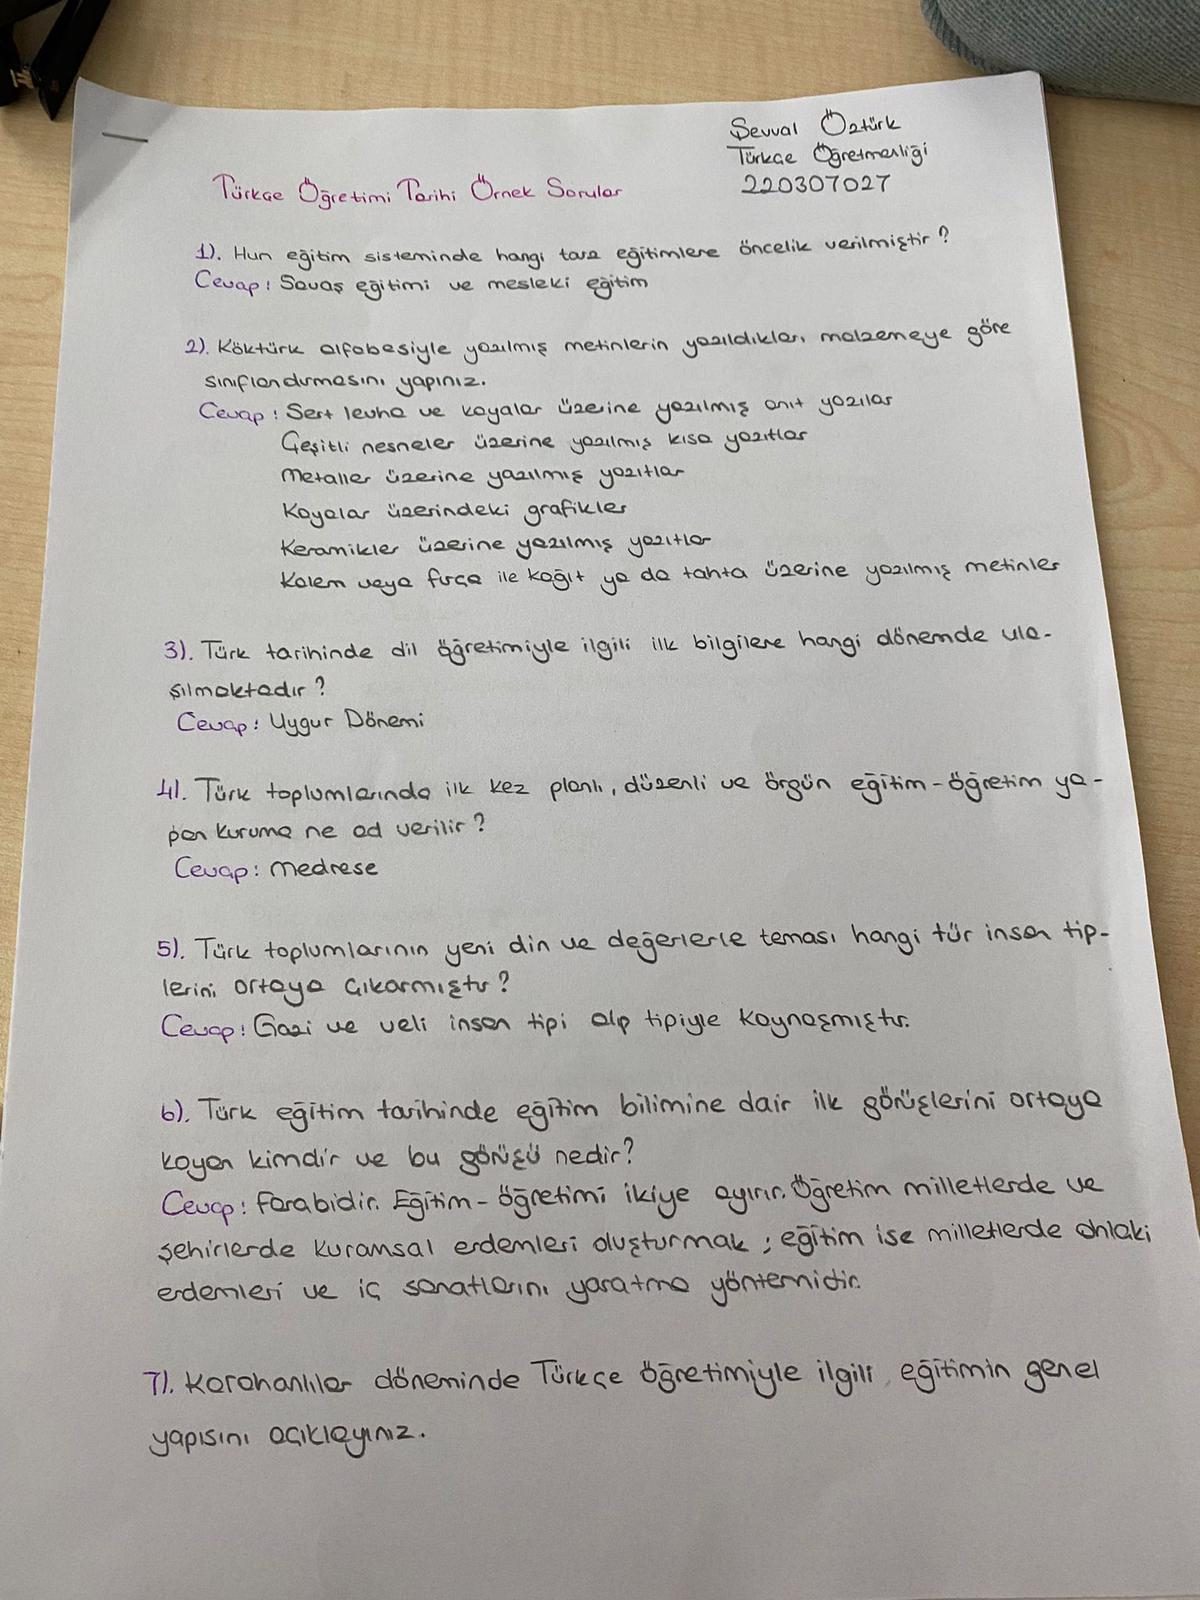 Şevval Öztürk
Türkçe Öğretmenliği
220307027
Türkçe Öğretimi Tarihi Örnek Sorular
1). Hun eğitim sisteminde hangi tarz eğitimlere öncelik verilmiştir?
Cevap: Savaş eğitimi ve mesleki eğitim
2). Köktürk alfabesiyle yazılmış metinlerin yazıldıkları malzemeye göre
sınıflandırmasını yapınız.
Cevap: Sert levha ve kayalar üzerine yazılmış anıt yazılar
Çeşitli nesneler üzerine yazılmış kısa yazıtlar
Metaller üzerine yazılmış yazıtlar
Kayalar üzerindeki grafikler
Keramikler üzerine yazılmış yazıtlar
Kalem veya fırça ile kağıt ya da tahta üzerine yazılmış metinler
3). Türk tarihinde dil öğretimiyle ilgili ilk bilgilere hangi dönemde ula-
şılmaktadır?
Cevap: Uygur Dönemi
4). Türk toplumlarında ilk kez planlı, düzenli ve örgün eğitim-öğretim ya-
pan kuruma ne ad verilir?
Cevap: Medrese
5). Türk toplumlarının yeni din ve değerlerle teması hangi tür insan tip-
lerini ortaya çıkarmıştır?
Cevap: Gazi ve veli insan tipi alp tipiyle kaynaşmıştır.
6). Türk eğitim tarihinde eğitim bilimine dair ilk görüşlerini ortaya
koyan kimdir ve bu görüşü nedir?
Cevap: Farabidir. Eğitim-öğretimi ikiye ayırır. Öğretim milletlerde ve
şehirlerde kuramsal erdemleri oluşturmak; eğitim ise milletlerde ahlaki
erdemleri ve iç sanatlarını yaratma yöntemidir.
7). Karahanlılar döneminde Türkçe öğretimiyle ilgili eğitimin genel
yapısını açıklayınız.